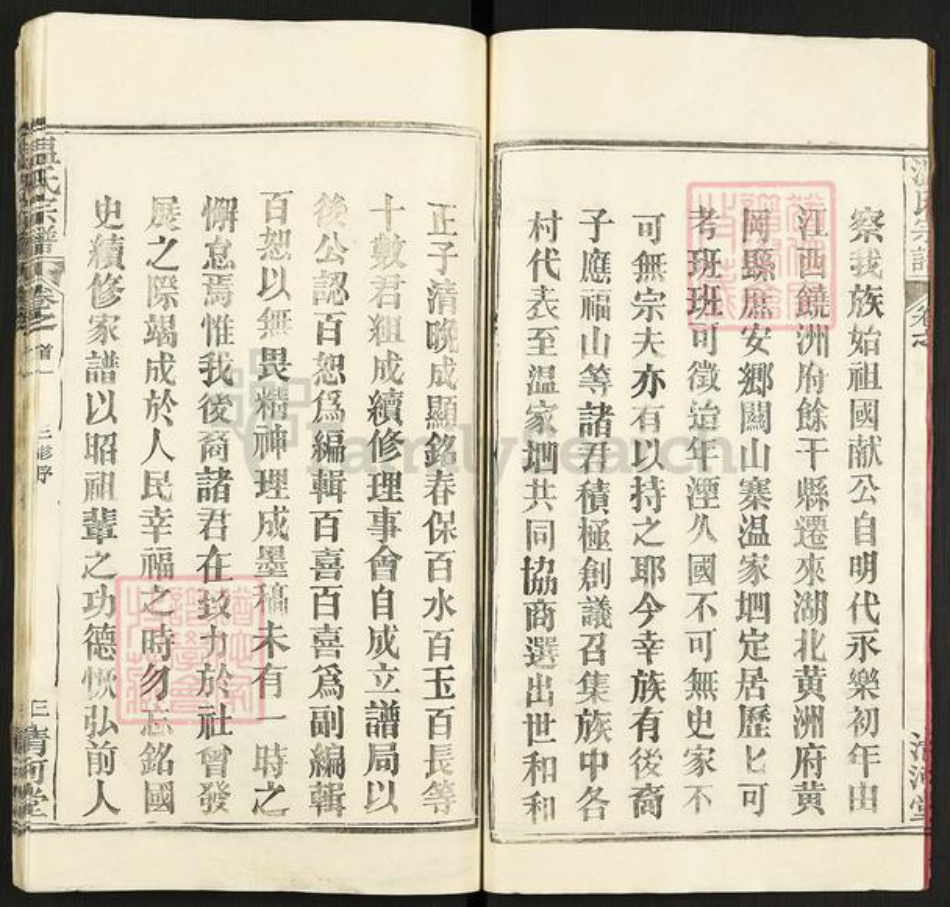 察我族始祖國献公自明代永樂初年由
江西饒洲府餘干縣遷來湖北黃洲府黃
岡縣庶安鄉闊山寨温家垇定居歷匕可
考班班可徵迨年湮久國不可無史家不
可無宗夫亦有以持之耶今幸族有後裔
子應福山等諸君積極創議召集族中各
村代表至温家垇共同協商選出世和和
正子清晩成顯銘春保百水百玉百長等
十數君組成續修理事會自成立譜局以
後公認百恕爲編輯百喜百喜爲副編輯
百恕以無畏精神理成墨稿未有一時之
懈怠焉惟我後裔諸君在致力於社會發
展之際竭成於人民幸福之時勿忘銘國
史續修家譜以昭祖輩之功德恢弘前人
温氏宗譜
卷之首一
三修序
三
清河堂
familysearch.cn